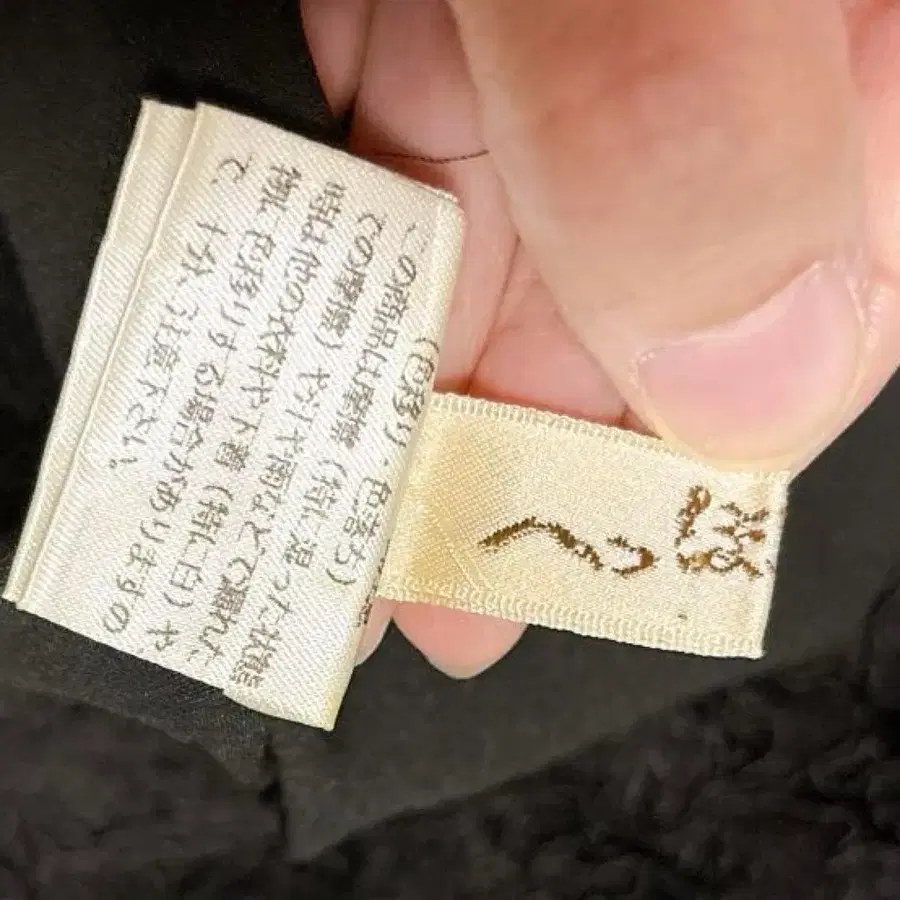 (色移り・色落ち)
この商品は摩擦(特に湿った状態
での摩擦)や汗や雨などで濡れた
時は他の衣料や下着(特に白)や
物に色移りする場合がありますの
で、十分ご注意下さい。